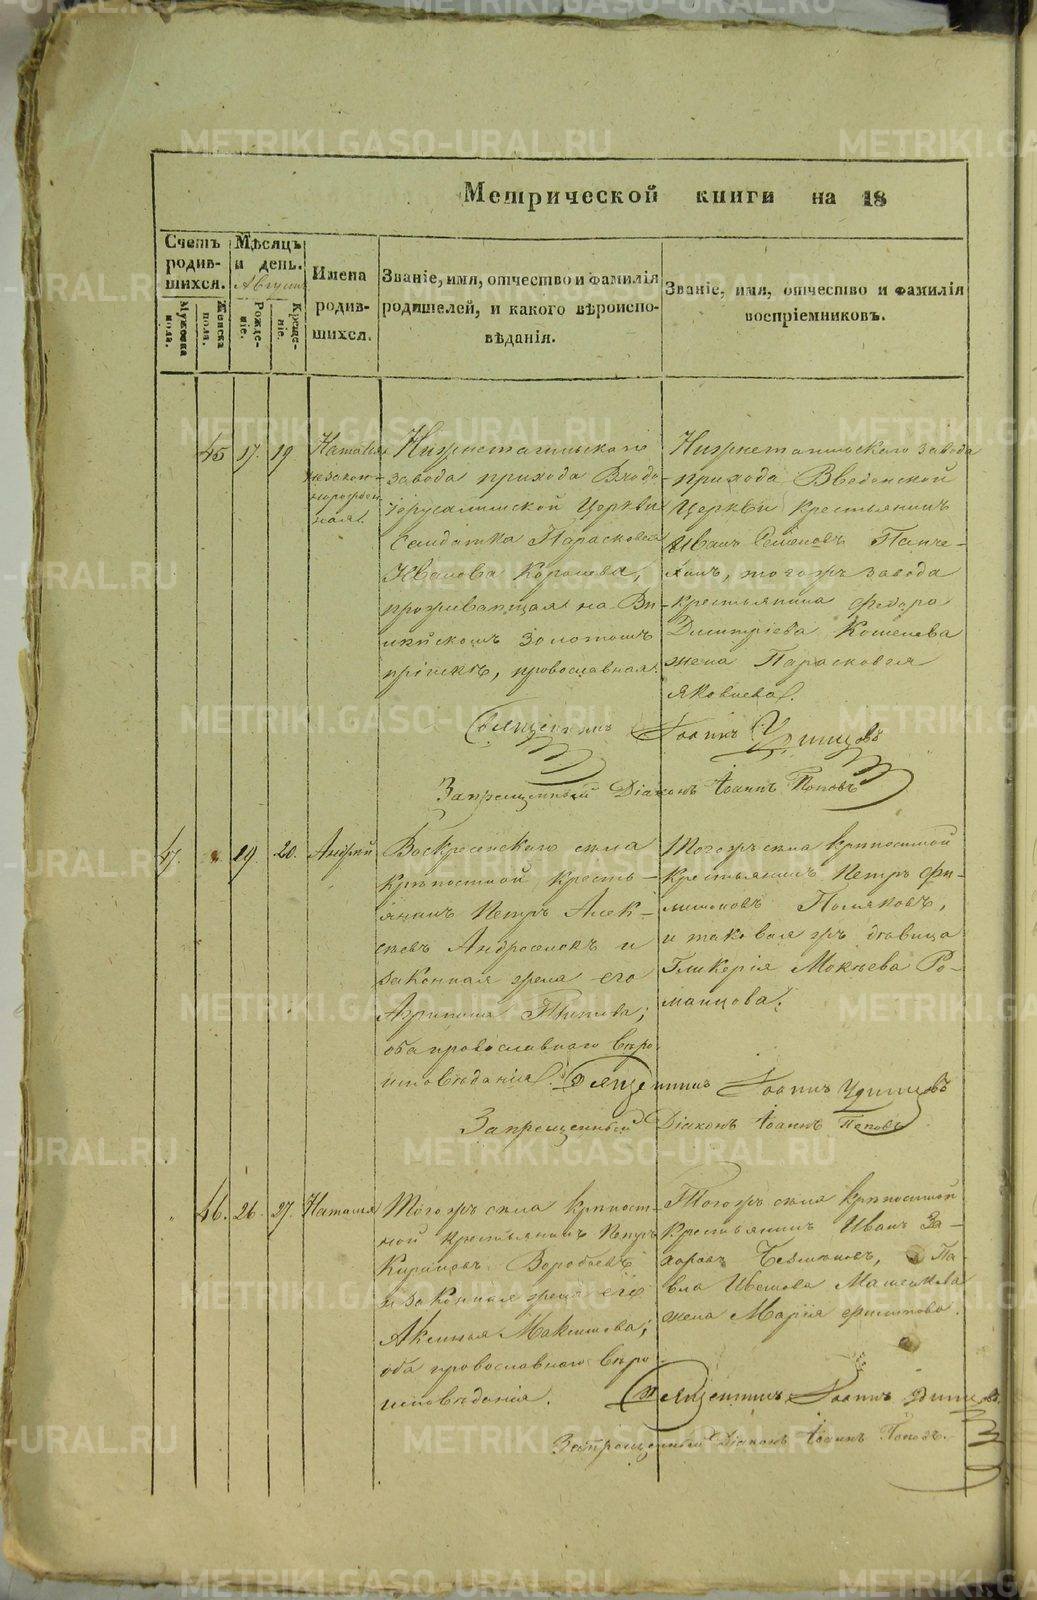 Метрической книги на 18
Счетъ родив-
шихся.
Мѣсяцъ
и день.
Августъ
Имена
родив-
шихся.
Званіе, имя, отчество и фамилія
родителей, и какого вѣроиспо-
вѣданія.
Званіе, имя, отчество и фамилія
воспріемниковъ.
Мужеска
пола.
Женска
пола.
Рожде-
ніе.
Креще-
ніе.
45
17.
19
Наталія
незакон-
норожден-
ная.
Нижнетагильскаго
завода прихода Входо
іерусалимской Церкви
Солдатка Парасковья
Иванова Королева,
проживающая на Ви
золотомъ
пріискѣ, православная.
Нижнетагильскаго завода
прихода Введенской
Церкви крестьянинъ
Иванъ Семеновъ
тогожъ завода
крестьянина Федора
Димитріева Кошелева
жена Парасковья
Яковлева.
Священникъ Іоаннъ Удинцовъ
Запрещенный Діаконъ Іоаннъ Поповъ
47.
"
19.
20.
Андрей
Воскресенскаго села
крѣпостной кресть-
янинъ Петръ Алек-
сѣевъ и
законная жена его
Агрипина Титова;
оба православнаго вѣро-
исповѣданія.
Тогожъ села крѣпостной
крестьянинъ Петръ Фи-
Поляковъ,
и таковая жъ дѣвица
Гликерія Мокѣева Ро-
манцова.
Священникъ Іоаннъ Удинцовъ
Запрещенный Діаконъ Іоаннъ Поповъ
"
46.
26.
27.
Наталья
Тогожъ села крѣпост-
ной крестьянинъ Петръ
Кириловъ Воробьевъ
и законная жена его
Аксинья Максимова;
оба православнаго вѣро-
исповѣданія.
Тогожъ села крѣпостной
крестьянинъ Иванъ За-
харовъ Па-
вла
жена Марія Филипова.
Священникъ Іоаннъ Удинцовъ
Запрещенный Діаконъ Іоаннъ Поповъ.
METRIKI.GASO-URAL.RU